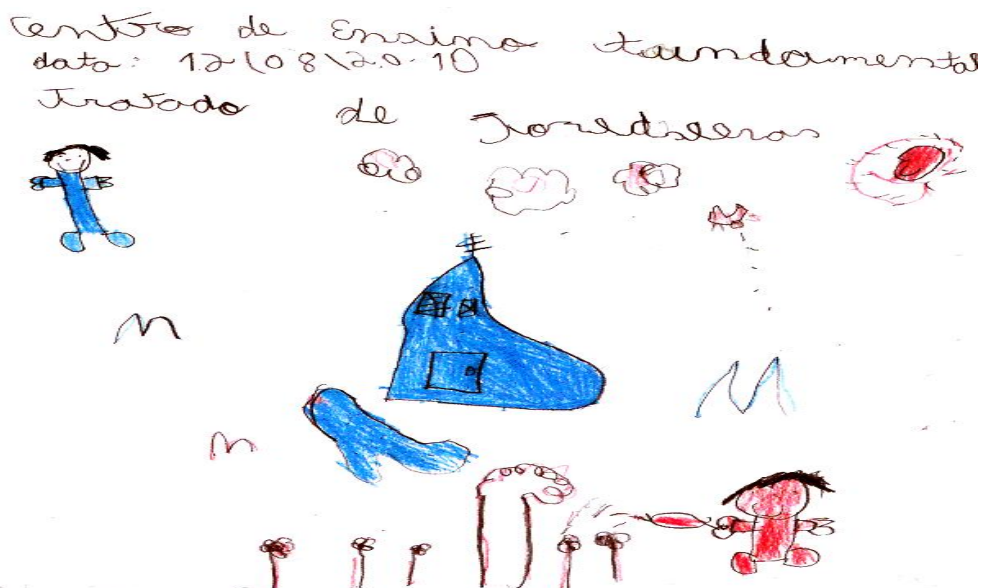 Centro de Ensino Fundamental
data: 12/08/2010
Tratado de